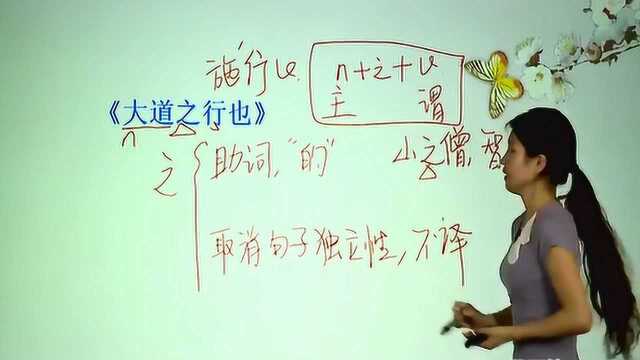 施行v n+之+v
主 谓
《大道之行也》
n
之 助词,“的” 小之僧,智
取消句子独立性,不译